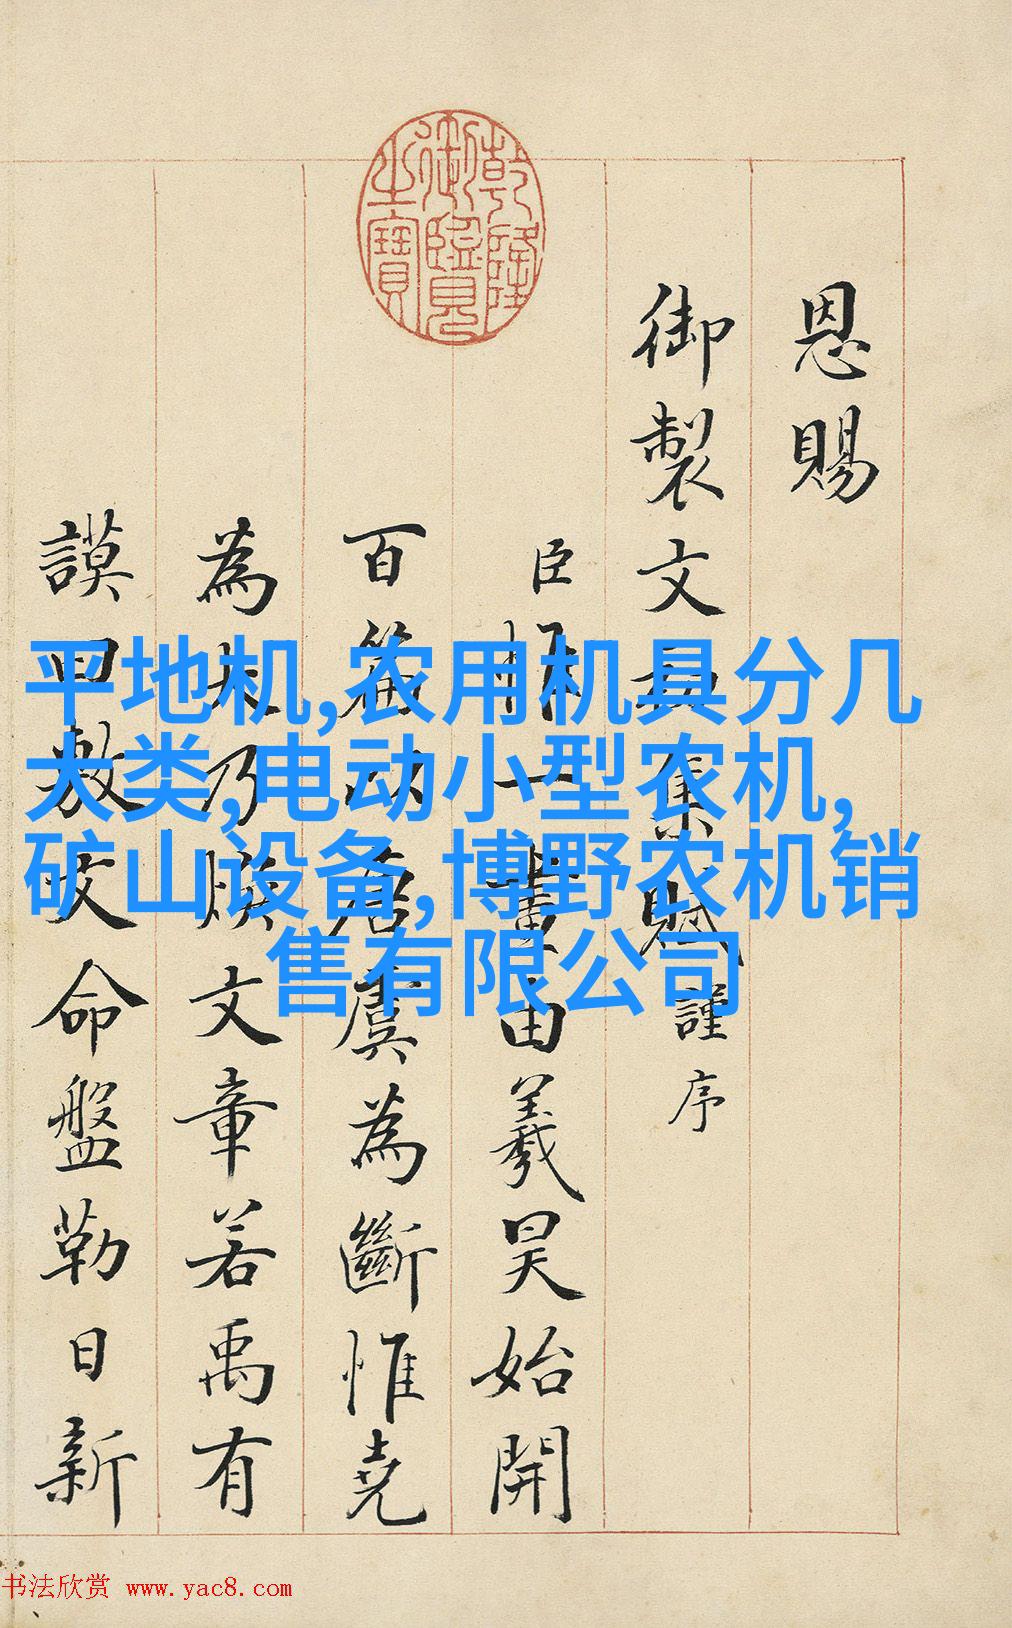 乾隆御覽之寶
恩賜
御製文集賦謹序
臣一由羲昊始開
百篇以唐虞為斷惟堯
為大乃煥文章若禹有
謨曰敷文命盤勒日新
平地机,农用机具分几
大类,电动小型农机,
矿山设备,博野农机销
售有限公司
书法欣赏 www.yac8.com